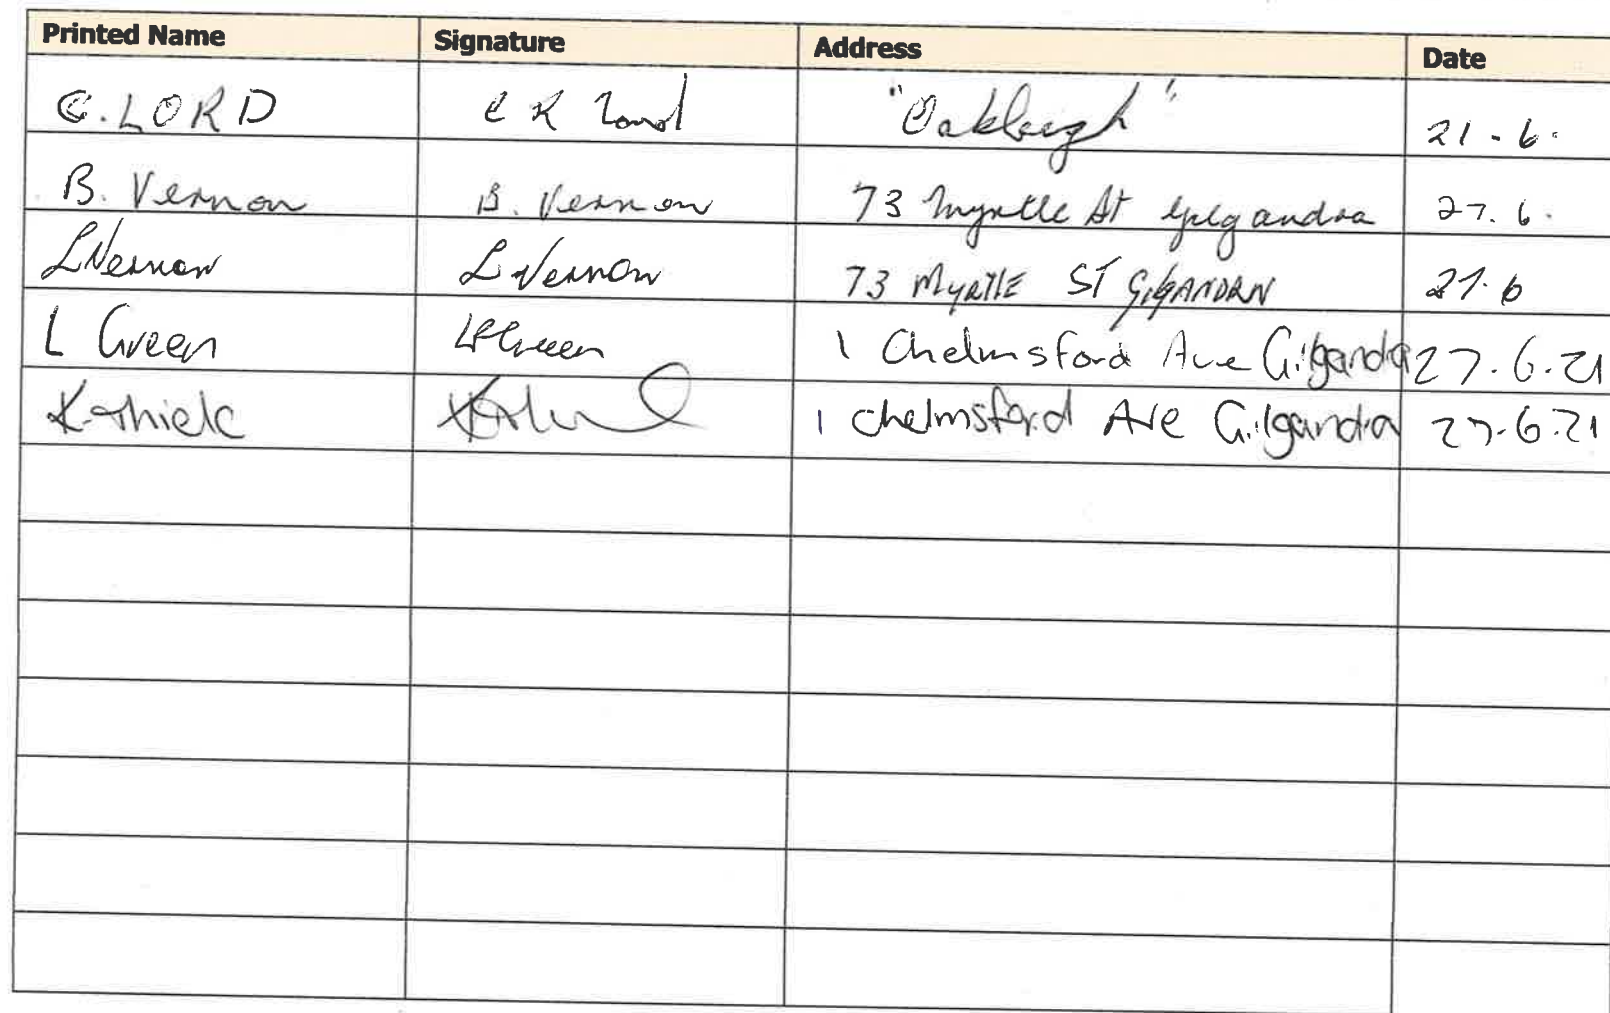 Printed Name Signature Address Date
C. LORD C R Lord "Oakleigh" 21-6.
B. Vernon B. Vernon 73 Myrtle St Gilgandra 27.6.
L Vernon L Vernon 73 MYRTLE ST 27.6
L Green Green 1 Chelmsford Ave Gilganda 27.6.21
K Thiele 1 Chelmsford Ave Gilgandra 27.6.21